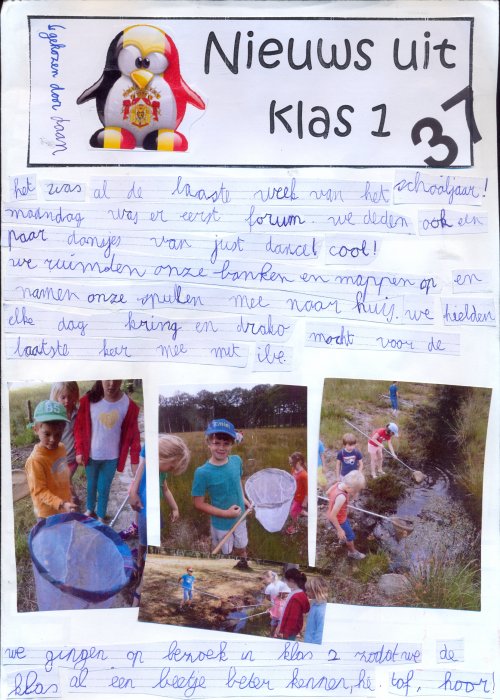 gekozen door daan
Nieuws uit
klas 1
37
het was al de laaste week van het schooljaar!
maandag was er eerst forum. we deden ook een
paar dansjes van just dance! cool!
we ruimden onze banken en mappen op en
namen onze spullen mee naar huis. we hielden
elke dag kring en drako mocht voor de
laatste keer mee met ibe.
we gingen op bezoek in klas 2 zodat we de
klas al een beetje beter kennen, hé. tof, hoor